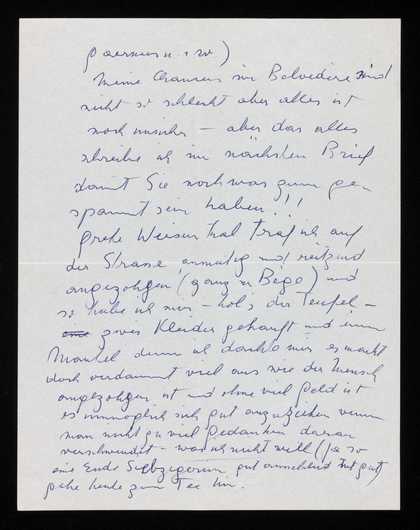 Meine Chancen im Belvedere sind
nicht so schlecht aber alles ist
noch unsicher – aber das alles
schreibe ich im nächsten Brief
damit Sie noch was zum ge
spannt sein haben!!!
Grete Wiesenthal traf ich auf
der Strasse, anmutig und reitzend
angezohgen (ganz in Bège) und
so habe ich mir – hol's der Teufel –
zwei Kleider gekauft und einen
Mantel denn ich dachte mir es macht
doch verdammt viel aus wie der Mensch
angezohgen ist und ohne viel Geld ist
es unmöglich sich gut anzuziehen wenn
man nicht zu viel Gedanken daran
verschwendet – was ich nicht will (
eine Ende gut)
gehe heute zum Tee hin.